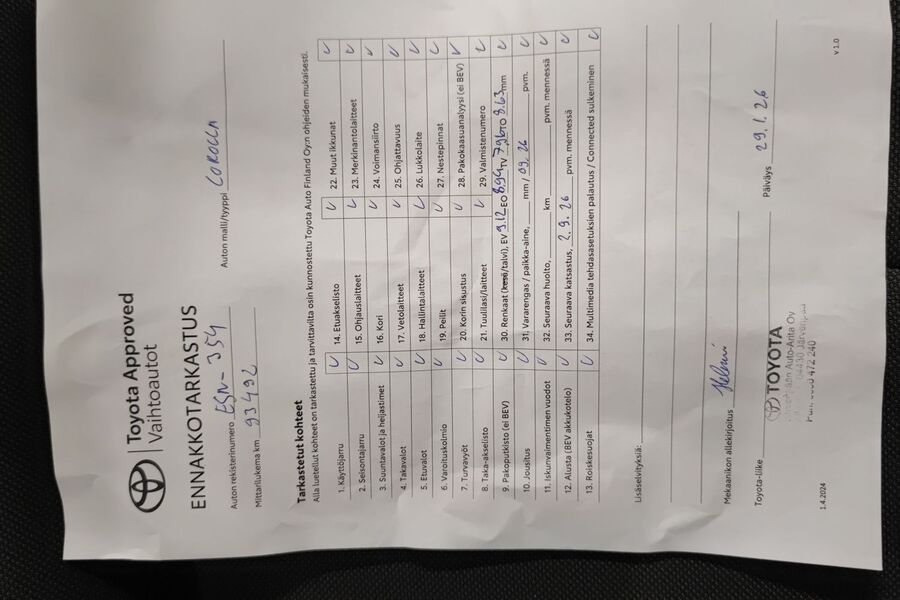 Toyota Approved
Vaihtoautot
ENNAKKOTARKASTUS
Auton rekisterinumero ESN-354 Auton malli/tyyppi COROLLA
Mittarilukema km 93492
Tarkastetut kohteet
Alla luetellut kohteet on tarkastettu ja tarvittavilta osin kunnostettu Toyota Auto Finland Oy:n ohjeiden mukaisesti.
1. Käyttöjarru ✓ 14. Etuakselisto ✓ 22. Muut ikkunat ✓
2. Seisontajarru ✓ 15. Ohjauslaitteet ✓ 23. Merkinantolaitteet ✓
3. Suuntavalot ja heijastimet ✓ 16. Kori ✓ 24. Voimansiirto ✓
4. Takavalot ✓ 17. Vetolaitteet ✓ 25. Ohjattavuus ✓
5. Etuvalot ✓ 18. Hallintalaitteet ✓ 26. Lukkolaite ✓
6. Varoituskolmio ✓ 19. Peilit ✓ 27. Nestepinnat ✓
7. Turvavyöt ✓ 20. Korin sisustus ✓ 28. Pakokaasuanalyysi (ei BEV) ✓
8. Taka-akselisto ✓ 21. Tuulilasi/laitteet ✓ 29. Valmistenumero ✓
9. Pakoputkisto (ei BEV) ✓ 30. Renkaat (kesä/talvi), EV 9.12 EO 8.99 TV 7.96 TO 8.63 mm ✓
10. Jousitus ✓ 31. Vararengas / paikka-aine, mm / 09.26 pvm. ✓
11. Iskunvaimentimen vuodot ✓ 32. Seuraava huolto, km pvm. mennessä ✓
12. Alusta (BEV akkukotelo) ✓ 33. Seuraava katsastus, 2.9.26 pvm. mennessä ✓
13. Roiskesuojat ✓ 34. Multimedia tehdasasetuksien palautus / Connected sulkeminen ✓
Lisäselvityksiä:
Mekaanikon allekirjoitus
Toyota-liike Päiväys 29.1.26
TOYOTA
Auto-Arita Oy
04430 Järvenpää
472 240
1.4.2024 v 1.0